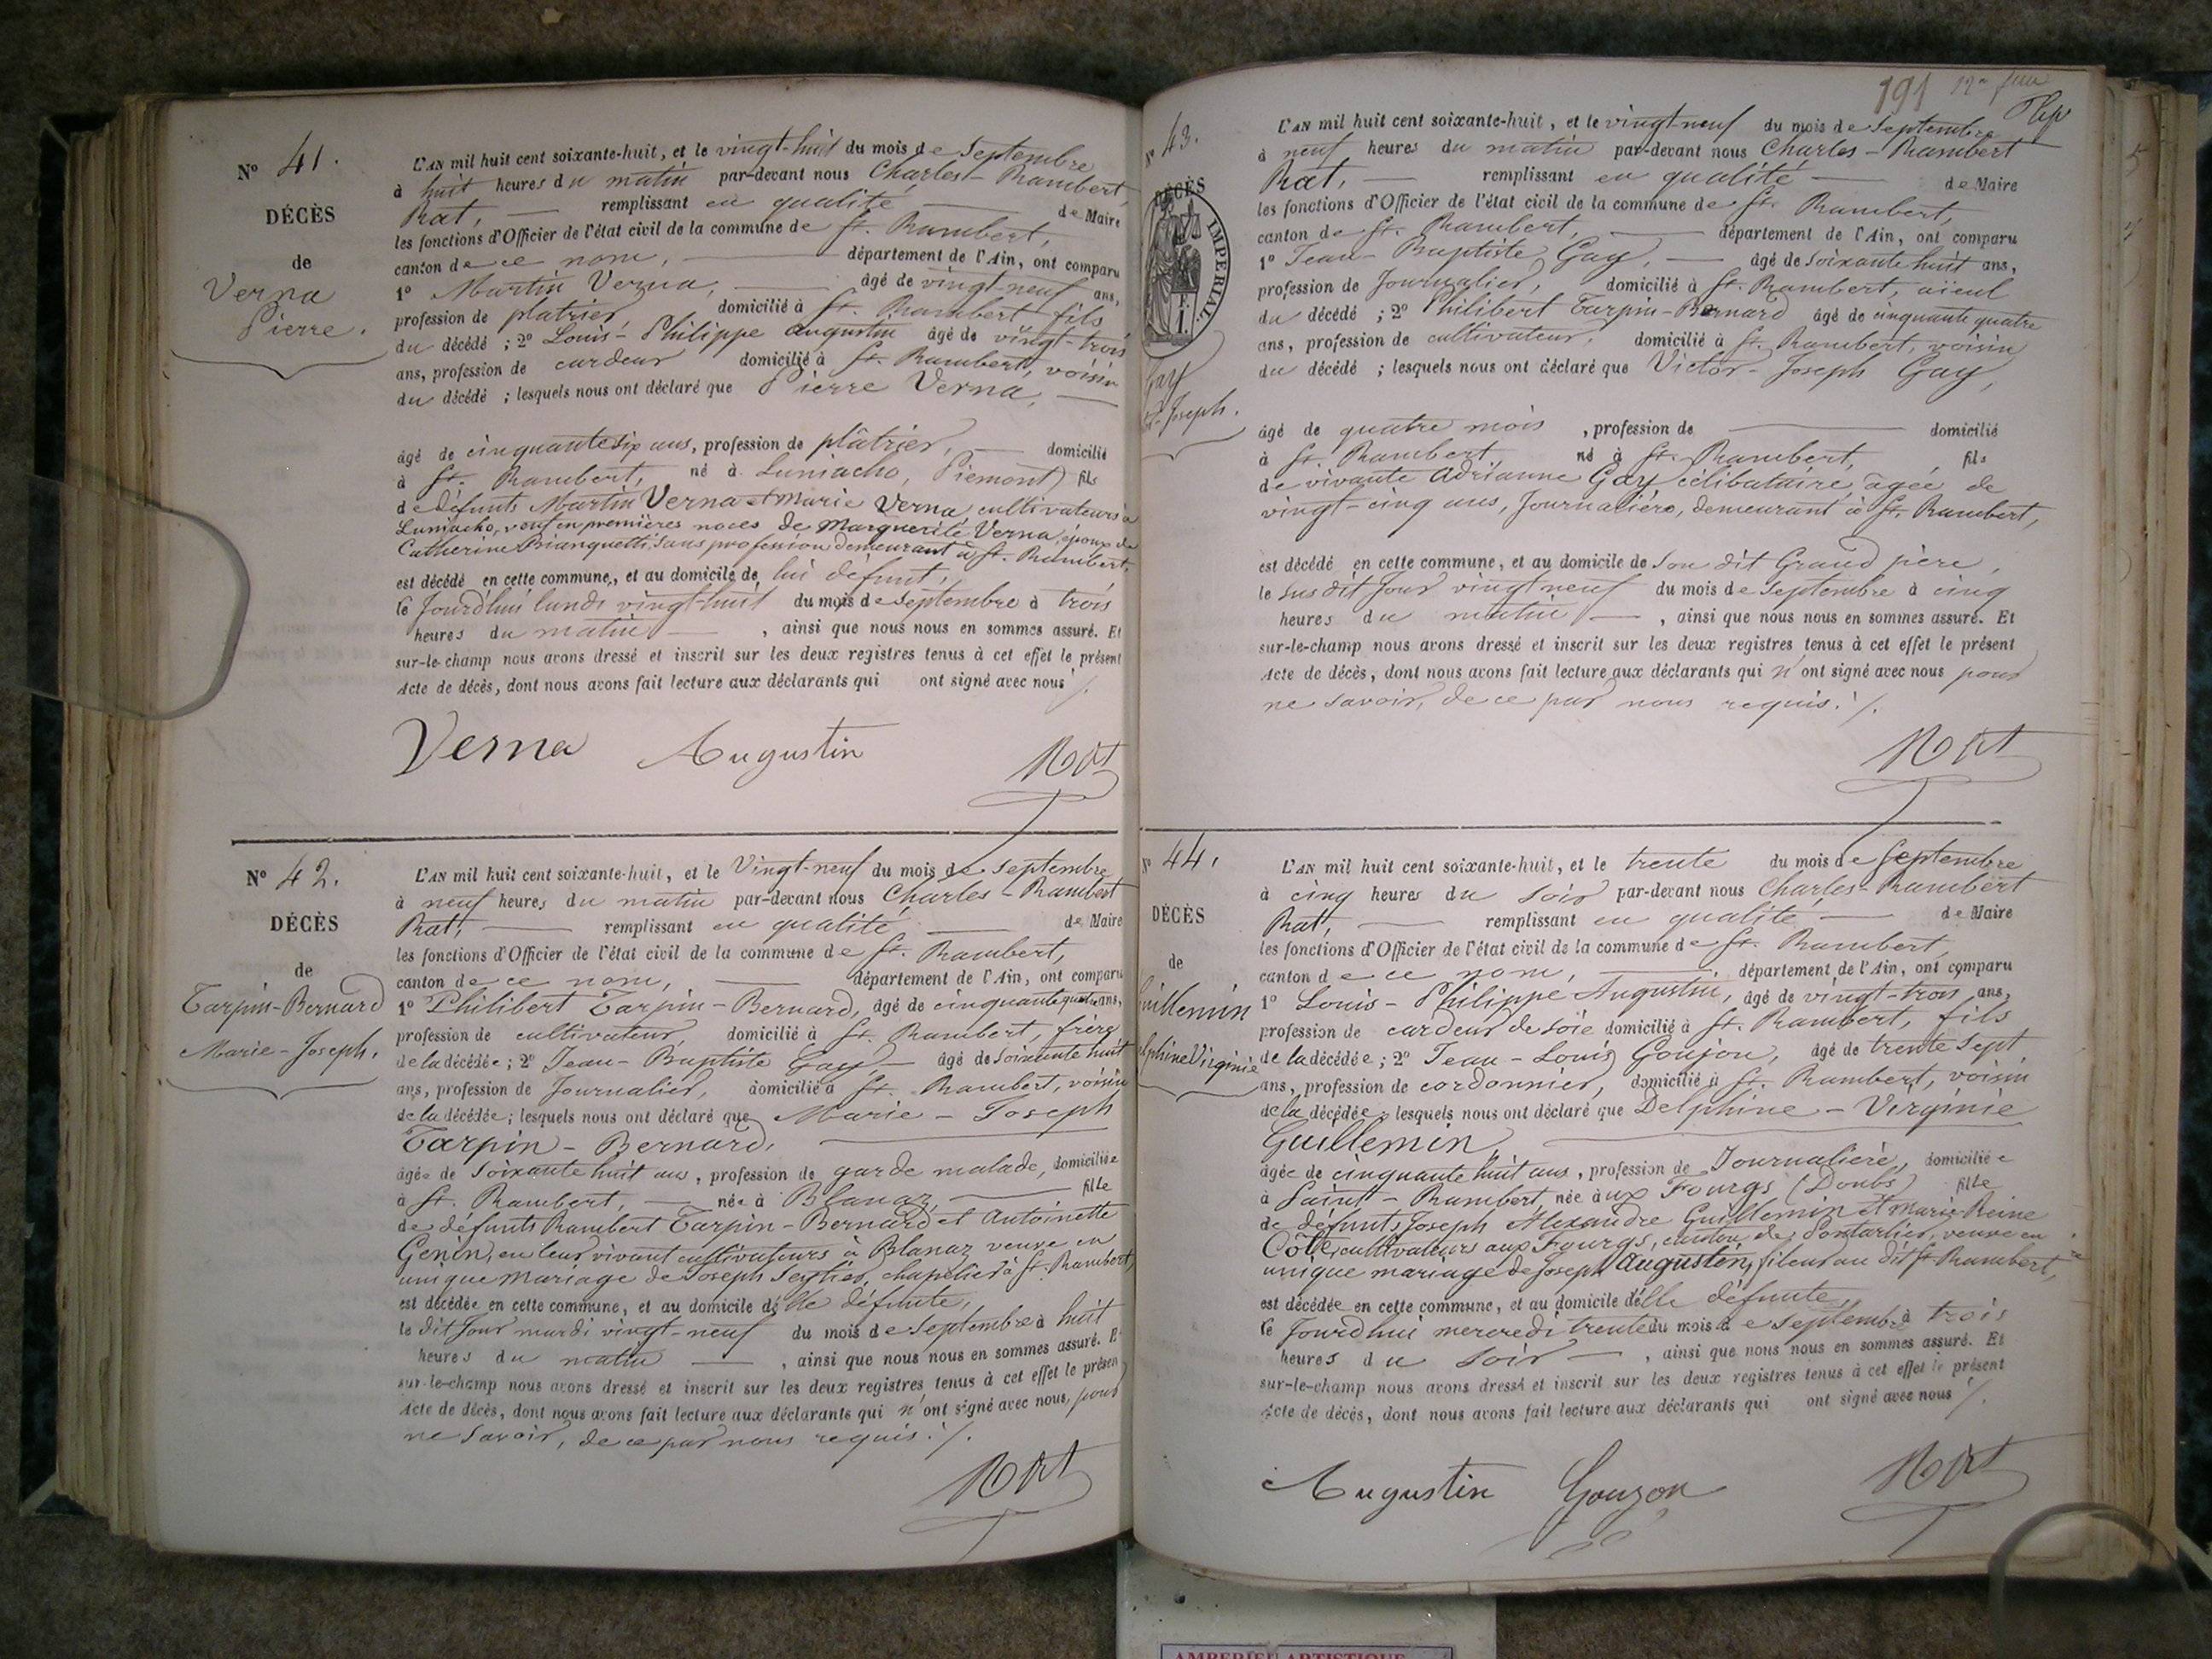 N° 41.
DÉCÈS
de
Verna
Pierre.
L'AN mil huit cent soixante-huit, et le vingt-huit du mois de Septembre
à huit heures du matin par-devant nous Charles-Rambert
Rat, remplissant en qualité de Maire
les fonctions d'Officier de l'état civil de la commune de St. Rambert,
canton de ce nom, département de l'Ain, ont comparu
1° Martin Verna, âgé de vingt-neuf ans,
profession de platrier, domicilié à St. Rambert fils
du décédé ; 2° Louis-Philippe Augustin âgé de vingt-trois
ans, profession de cardeur domicilié à St. Rambert, voisin
du décédé ; lesquels nous ont déclaré que Pierre Verna,
âgé de cinquante six ans, profession de plâtrier, domicilié
à St. Rambert, né à Luniacho, Piemont) fils
de défunts Martin Verna et Marie Verna, cultivateurs à
Luniacho, veuf en premières noces de Marguerite Verna, époux de
Catherine Bianquetti, sans profession demeurant à St. Rambert,
est décédé en cette commune, et au domicile de lui défunt,
le Jourd'hui lundi vingt-huit du mois de Septembre à trois
heures du matin, ainsi que nous nous en sommes assuré. Et
sur-le-champ nous avons dressé et inscrit sur les deux registres tenus à cet effet le présent
Acte de décès, dont nous avons fait lecture aux déclarants qui ont signé avec nous ./.
Verna Augustin Rat
N° 42.
DÉCÈS
de
Tarpin-Bernard
Marie-Joseph.
L'AN mil huit cent soixante-huit, et le Vingt-neuf du mois de Septembre
à neuf heures du matin par-devant nous Charles-Rambert
Rat, remplissant en qualité de Maire
les fonctions d'Officier de l'état civil de la commune de St. Rambert,
canton de ce nom, département de l'Ain, ont comparu
1° Philibert Tarpin-Bernard, âgé de cinquante quatre ans,
profession de cultivateur, domicilié à St. Rambert, frère
de la décédée; 2° Jean-Baptiste Gay, âgé de Soixante huit
ans, profession de Journalier, domicilié à St. Rambert, voisin
de la décédée; lesquels nous ont déclaré que Marie-Joseph
Tarpin-Bernard,
âgée de Soixante huit ans, profession de garde malade, domiciliée
à St. Rambert, née à Blanaz, fille
de défunts Rambert Tarpin-Bernard et Antoinette
Genin, en leur vivant cultivateurs à Blanaz veuve en
unique mariage de Joseph Seytier, chapelier à St. Rambert,
est décédée en cette commune, et au domicile d'elle défunte,
le dit Jour mardi vingt-neuf du mois de Septembre à huit
heures du matin, ainsi que nous nous en sommes assuré. Et
sur-le-champ nous avons dressé et inscrit sur les deux registres tenus à cet effet le présen
Acte de décès, dont nous avons fait lecture aux déclarants qui n'ont signé avec nous, pour
ne savoir, de ce par nous requis ./.
Rat
191 12e
N° 43.
DÉCÈS
IMPERIAL.
Gay
Joseph.
L'AN mil huit cent soixante-huit, et le vingt-neuf du mois de Septembre
à neuf heures du matin par-devant nous Charles-Rambert
Rat, remplissant en qualité de Maire
les fonctions d'Officier de l'état civil de la commune de St. Rambert,
canton de St. Rambert, département de l'Ain, ont comparu
1° Jean-Baptiste Gay, âgé de Soixante huit ans,
profession de Journalier, domicilié à St. Rambert, aïeul
du décédé ; 2° Philibert Tarpin-Bernard âgé de cinquante quatre
ans, profession de cultivateur, domicilié à St. Rambert, voisin
du décédé ; lesquels nous ont déclaré que Victor-Joseph Gay,
âgé de quatre mois, profession de domicilié
à St. Rambert né à St. Rambert, fils
de vivante Adrianne Gay célibataire, agée de
vingt-cinq ans, Journalière, demeurant à St. Rambert,
est décédé en cette commune, et au domicile de Son dit Grand père,
le susdit Jour vingt neuf du mois de Septembre à cinq
heures du matin, ainsi que nous nous en sommes assuré. Et
sur-le-champ nous avons dressé et inscrit sur les deux registres tenus à cet effet le présent
Acte de décès, dont nous avons fait lecture aux déclarants qui n'ont signé avec nous pour
ne savoir, de ce par nous requis ./.
Rat
N° 44.
DÉCÈS
de
Guillemin
elphine Virginie
L'AN mil huit cent soixante-huit, et le trente du mois de Septembre
à cinq heures du soir par-devant nous Charles-Rambert
Rat, remplissant en qualité de Maire
les fonctions d'Officier de l'état civil de la commune de St. Rambert,
canton de ce nom, département de l'Ain, ont comparu
1° Louis-Philippe Augustin, âgé de vingt-trois ans,
profession de cardeur de soie domicilié à St. Rambert, fils
de la décédée; 2° Jean-Louis Goujon, âgé de trente sept
ans, profession de cordonnier, domicilié à St. Rambert, voisin
de la décédée; lesquels nous ont déclaré que Delphine-Virginie
Guillemin,
âgée de cinquante huit ans, profession de Journalière, domiciliée
à Saint-Rambert, née aux Fourgs (Doubs) fille
de défunts Joseph Alexandre Guillemin et Marie Reine
Côte, cultivateurs aux Fourgs, canton de Pontarlier, veuve en
unique mariage de Joseph Augustin, fileur au dit St. Rambert,
est décédée en cette commune, et au domicile d'elle défunte,
le Jourd'hui mercredi trente du mois de Septembre à trois
heures du soir, ainsi que nous nous en sommes assuré. Et
sur-le-champ nous avons dressé et inscrit sur les deux registres tenus à cet effet le présent
Acte de décès, dont nous avons fait lecture aux déclarants qui ont signé avec nous ./.
Augustin Gouzon Rat
AMBERIEU ARTISTIQUE